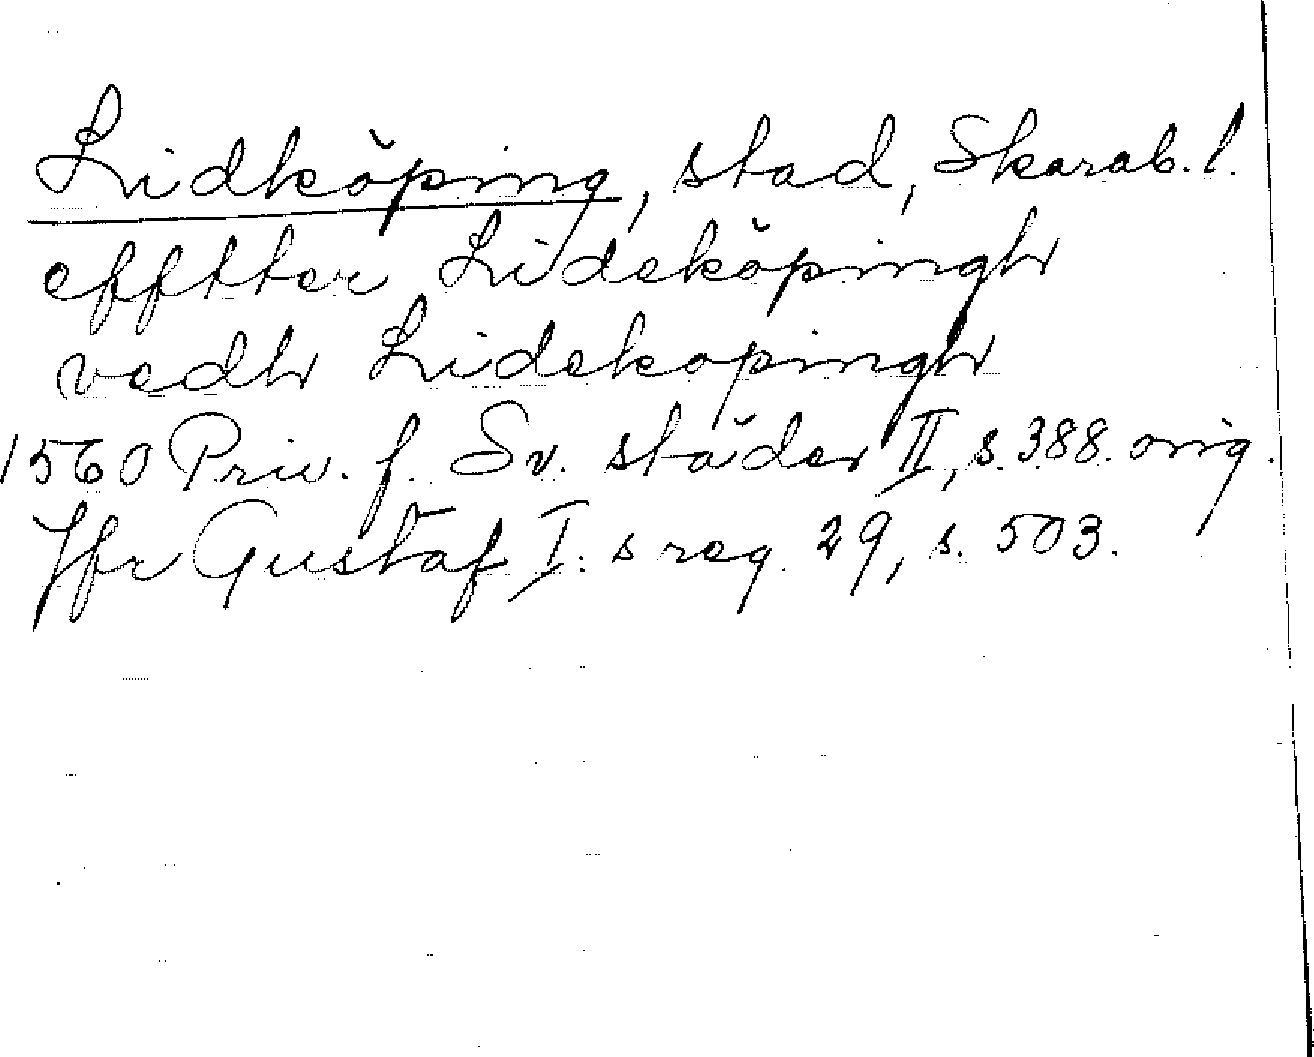 Lidköping, stad, Skarab. l.
efftter Lideköpingh
vedh Lidekopingh
1560 Priv. f. Sv. städer II, s. 388. orig.
Jfr Gustaf I:s reg. 29, s. 503.